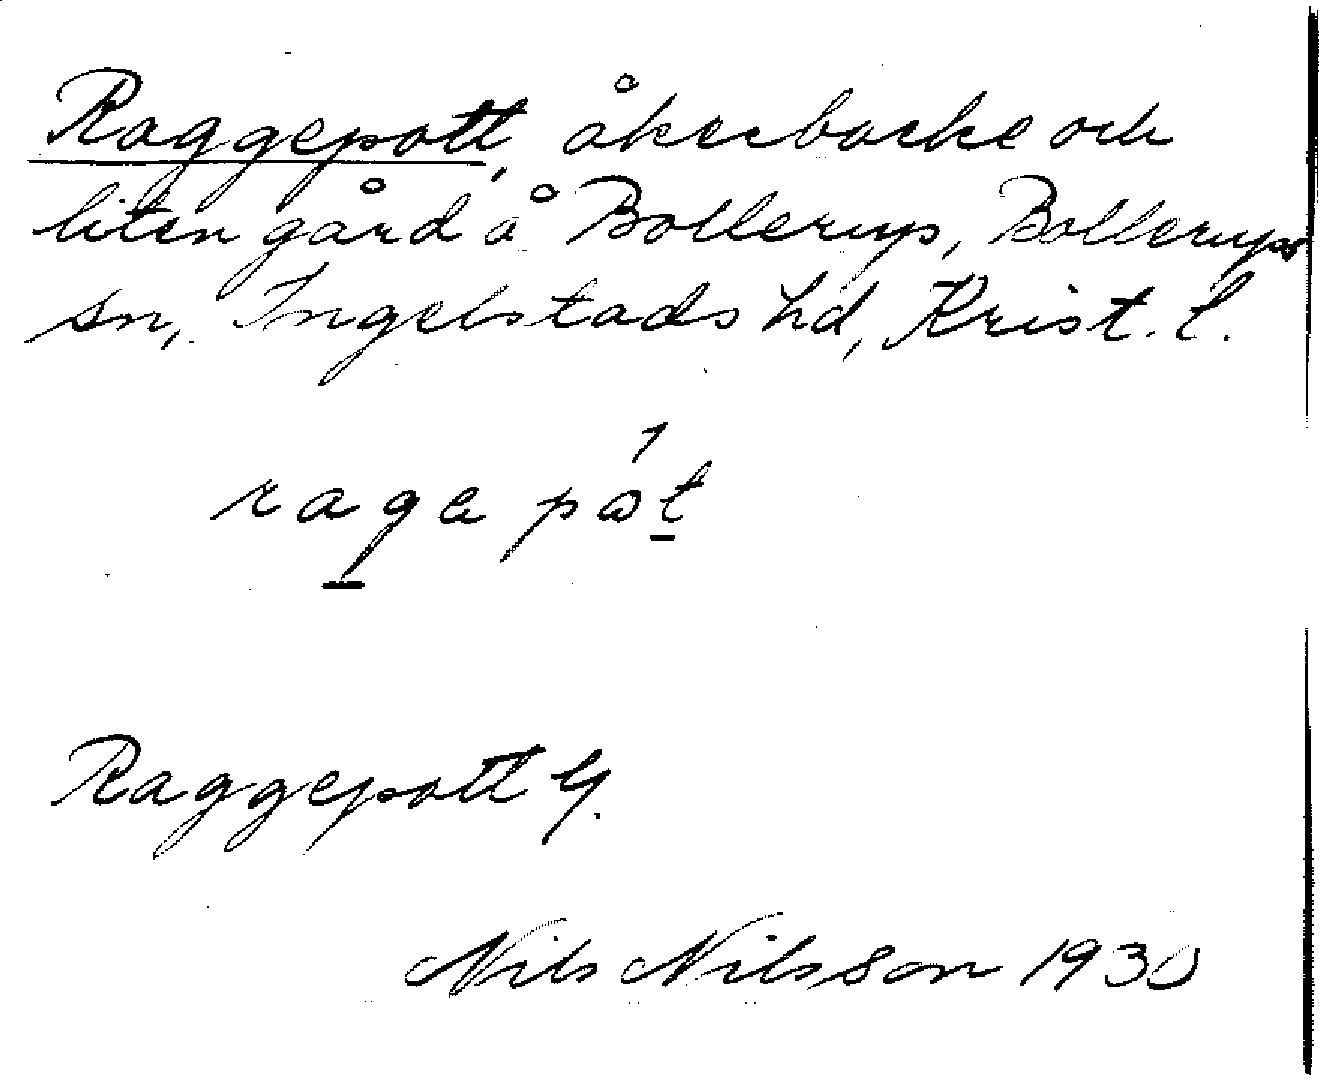 Raggepott, åkerbacke och
liten gård å Bollerup, Bollerups
sn, Ingelstads hd, Krist. l.
ragapåt
Raggepott G.
Nils Nilsson 1930